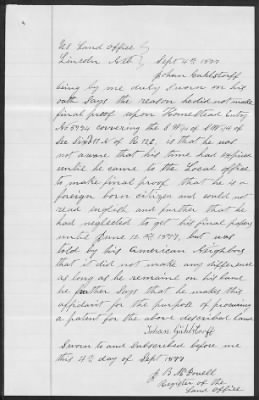 US Land Office
Lincoln Neb Sept 4th 1877
Johan
being by me duly sworn on his
oath Says the reason he did not made
final proof upon Homestead Entry
No covering the of SW/4 of
Sec of R 12 E, is that he was
not aware that his time had expired
until he came to the Local office
to make final proof that he is a
foreign born citizen and could not
read english and further that he
had neglected to get his final papers
until June 1877, but was
told by his American Neighbors
that it did not make any difference
as long as he remain on his land
he further Says that he makes this
affidavit for the purpose of procuring
a patent for the above described land
Johan
Sworn to and Subscribed before me
this 4th day of Sept 1877
J B McDowell
Register of the
Land Office